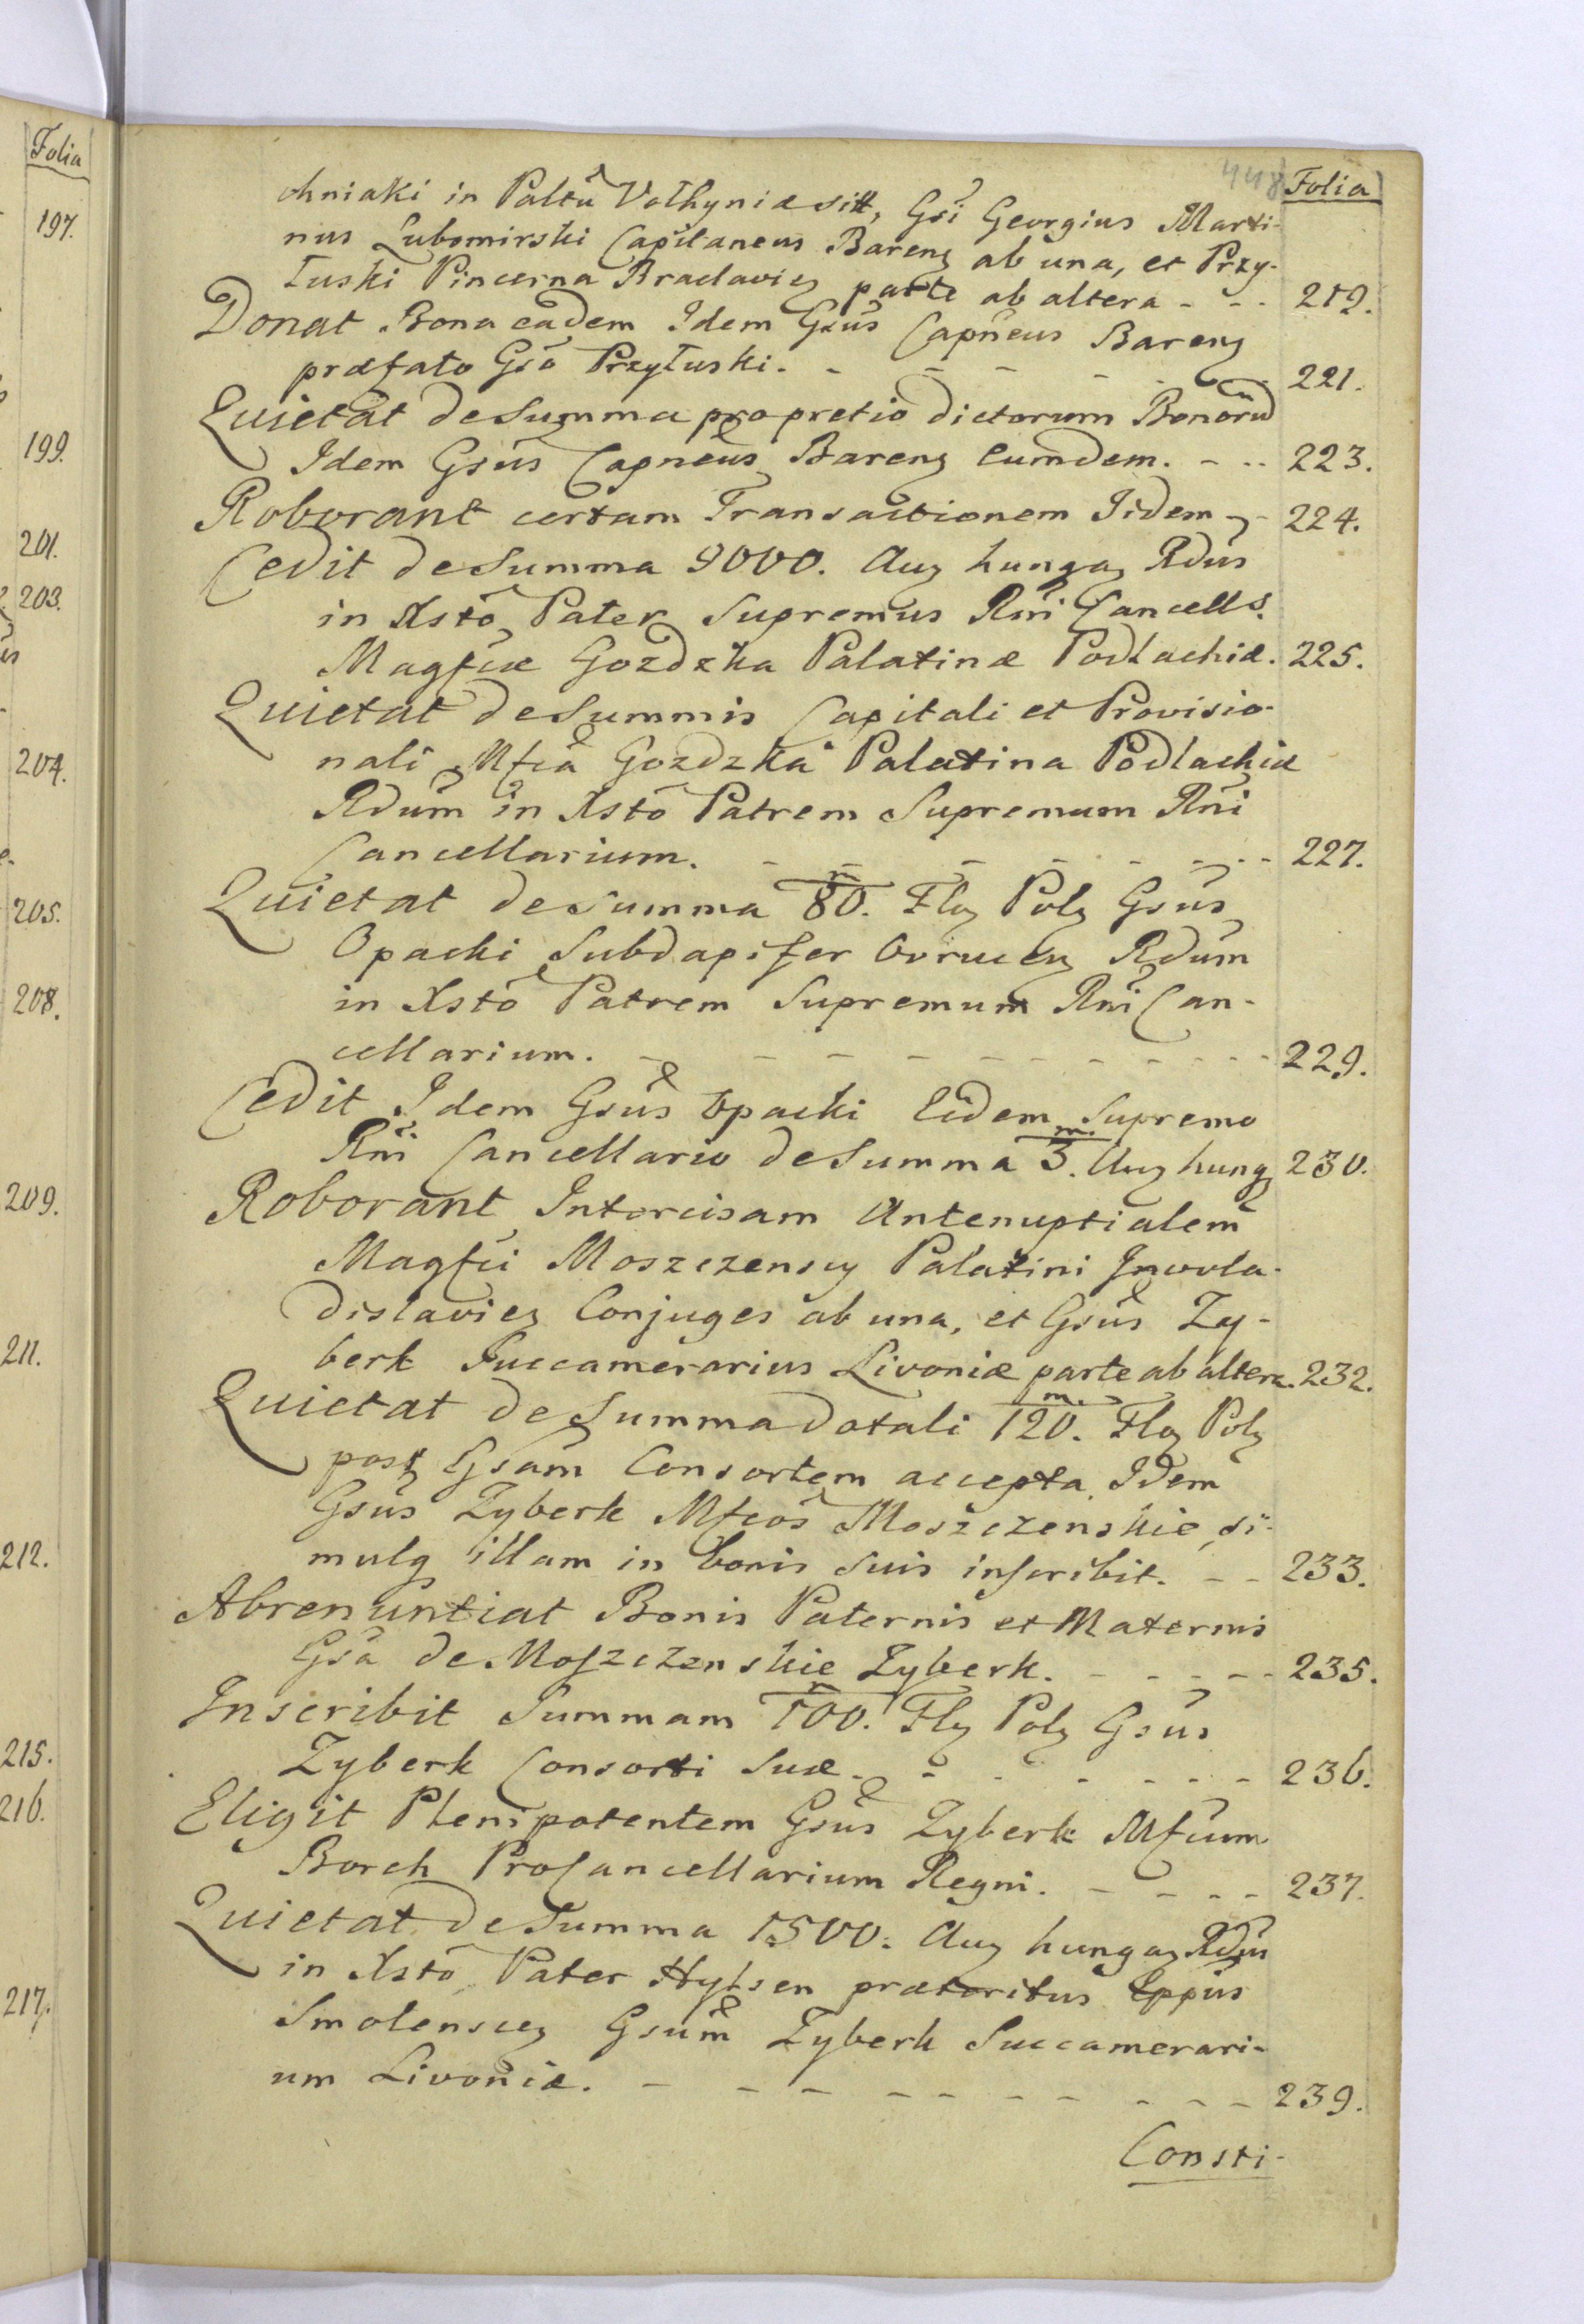 Folia
197.
199.
201.
203.
204.
205.
208.
209.
211.
212.
215.
216.
217.
448 Folia
chniaki in Paltũ Volhyniæ sitt, Gsi Georgius Marti-
nus Lubomirski Capitaneus Bareng ab una, et Przy-
łuski Pincerna Braclavieg parte ab altera - - - 219.
Donat Bona eadem Idem Gsus Capneus Bareng
præfato Gso Przyłuski. - - - - - 221.
Quietat de Summa pro pretio dictorum Bonorũ
Idem Gsus Capneus Bareng Eumdem. - - - 223.
Roborant certam Transactionem Iidem - - 224.
Cedit de Summa 9000. Aug hungag Rdus
in Xsto Pater Supremus Rni Cancells.
Magfcæ Gozdzka Palatinæ Podlachiæ. 225.
Quietat de Summis Capitali et Provisio-
nali Mfca Gozdzka Palatina Podlachiæ
Rdum in Xsto Patrem Supremum Rni
Cancellarium. - - - - - - - 227.
Quietat de Summa 80/m. Flog Polg Gsus
Opacki Subdapifer Ovruceng Rdum
in Xsto Patrem Supremum Rni Can-
cellarium. - - - - - - - - - - 229.
Cedit Idem Gsus Opacki Eidem Supremo
Rni Cancellario de Summa 3/m. Aug hung 230.
Roborant Intercisam Antenuptialem
Magfci Moszczenscy Palatini Inovla-
dislavieg Conjuges ab una, et Gsus Zy-
berk Succamerarius Livoniæ parte ab altera. 232.
Quietat de Summa Dotali 120/m. Flog Polg
post Gsam Consortem accepta Idem
Gsus Zyberk Mfcos Moszczenskie, si-
mulg illam in bonis suis inscribit. - - 233.
Abrenuntiat Bonis Paternis et Maternis
Gsa de Moszczenskie Zyberk. - - - - - 235.
Inscribit Summam 100/m. Flg Polg Gsus
Zyberk Consorti Suæ. - - - - - - - 236.
Eligit Plenipotentem Gsus Zyberk Mfcum
Borch ProCancellarium Regni. - - - - 237.
Quietat de Summa 1500. Aug hungag Rdus
in Xsto Pater Hylsen præteritus Eppus
Smolenscg Gsum Zyberk Succamerari-
um Livoniæ. - - - - - - - - - - 239.
Consti-